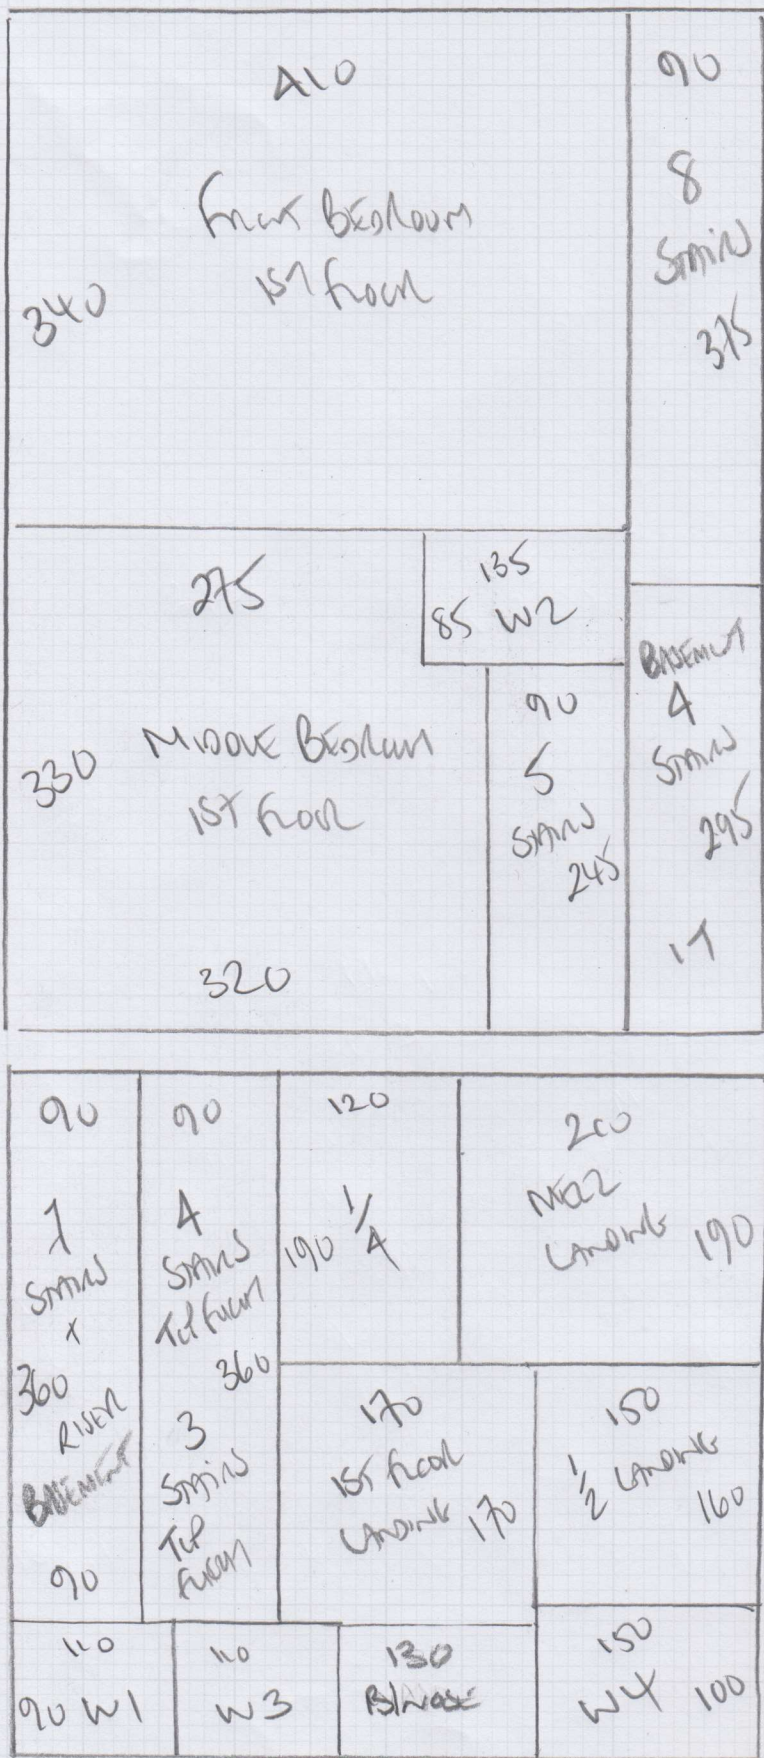 410
FRONT BEDROOM
1ST FLOOR
340
90
8
STAIRS
375
275
135
85 W2
330
MIDDLE BEDROOM
1ST FLOOR
320
90
5
STAIRS
245
BASEMENT
4
STAIRS
295
90
7
STAIRS
+
360
RISER
BASEMENT
90
90
4
STAIRS
TOP FLOOR
360
3
STAIRS
TOP
FLOOR
120
190 1/4
200
LANDING 190
170
1ST FLOOR
LANDING 170
150
1/2 LANDING
160
110
90 W1
110
W3
130
B/NOSE
150
W4 100